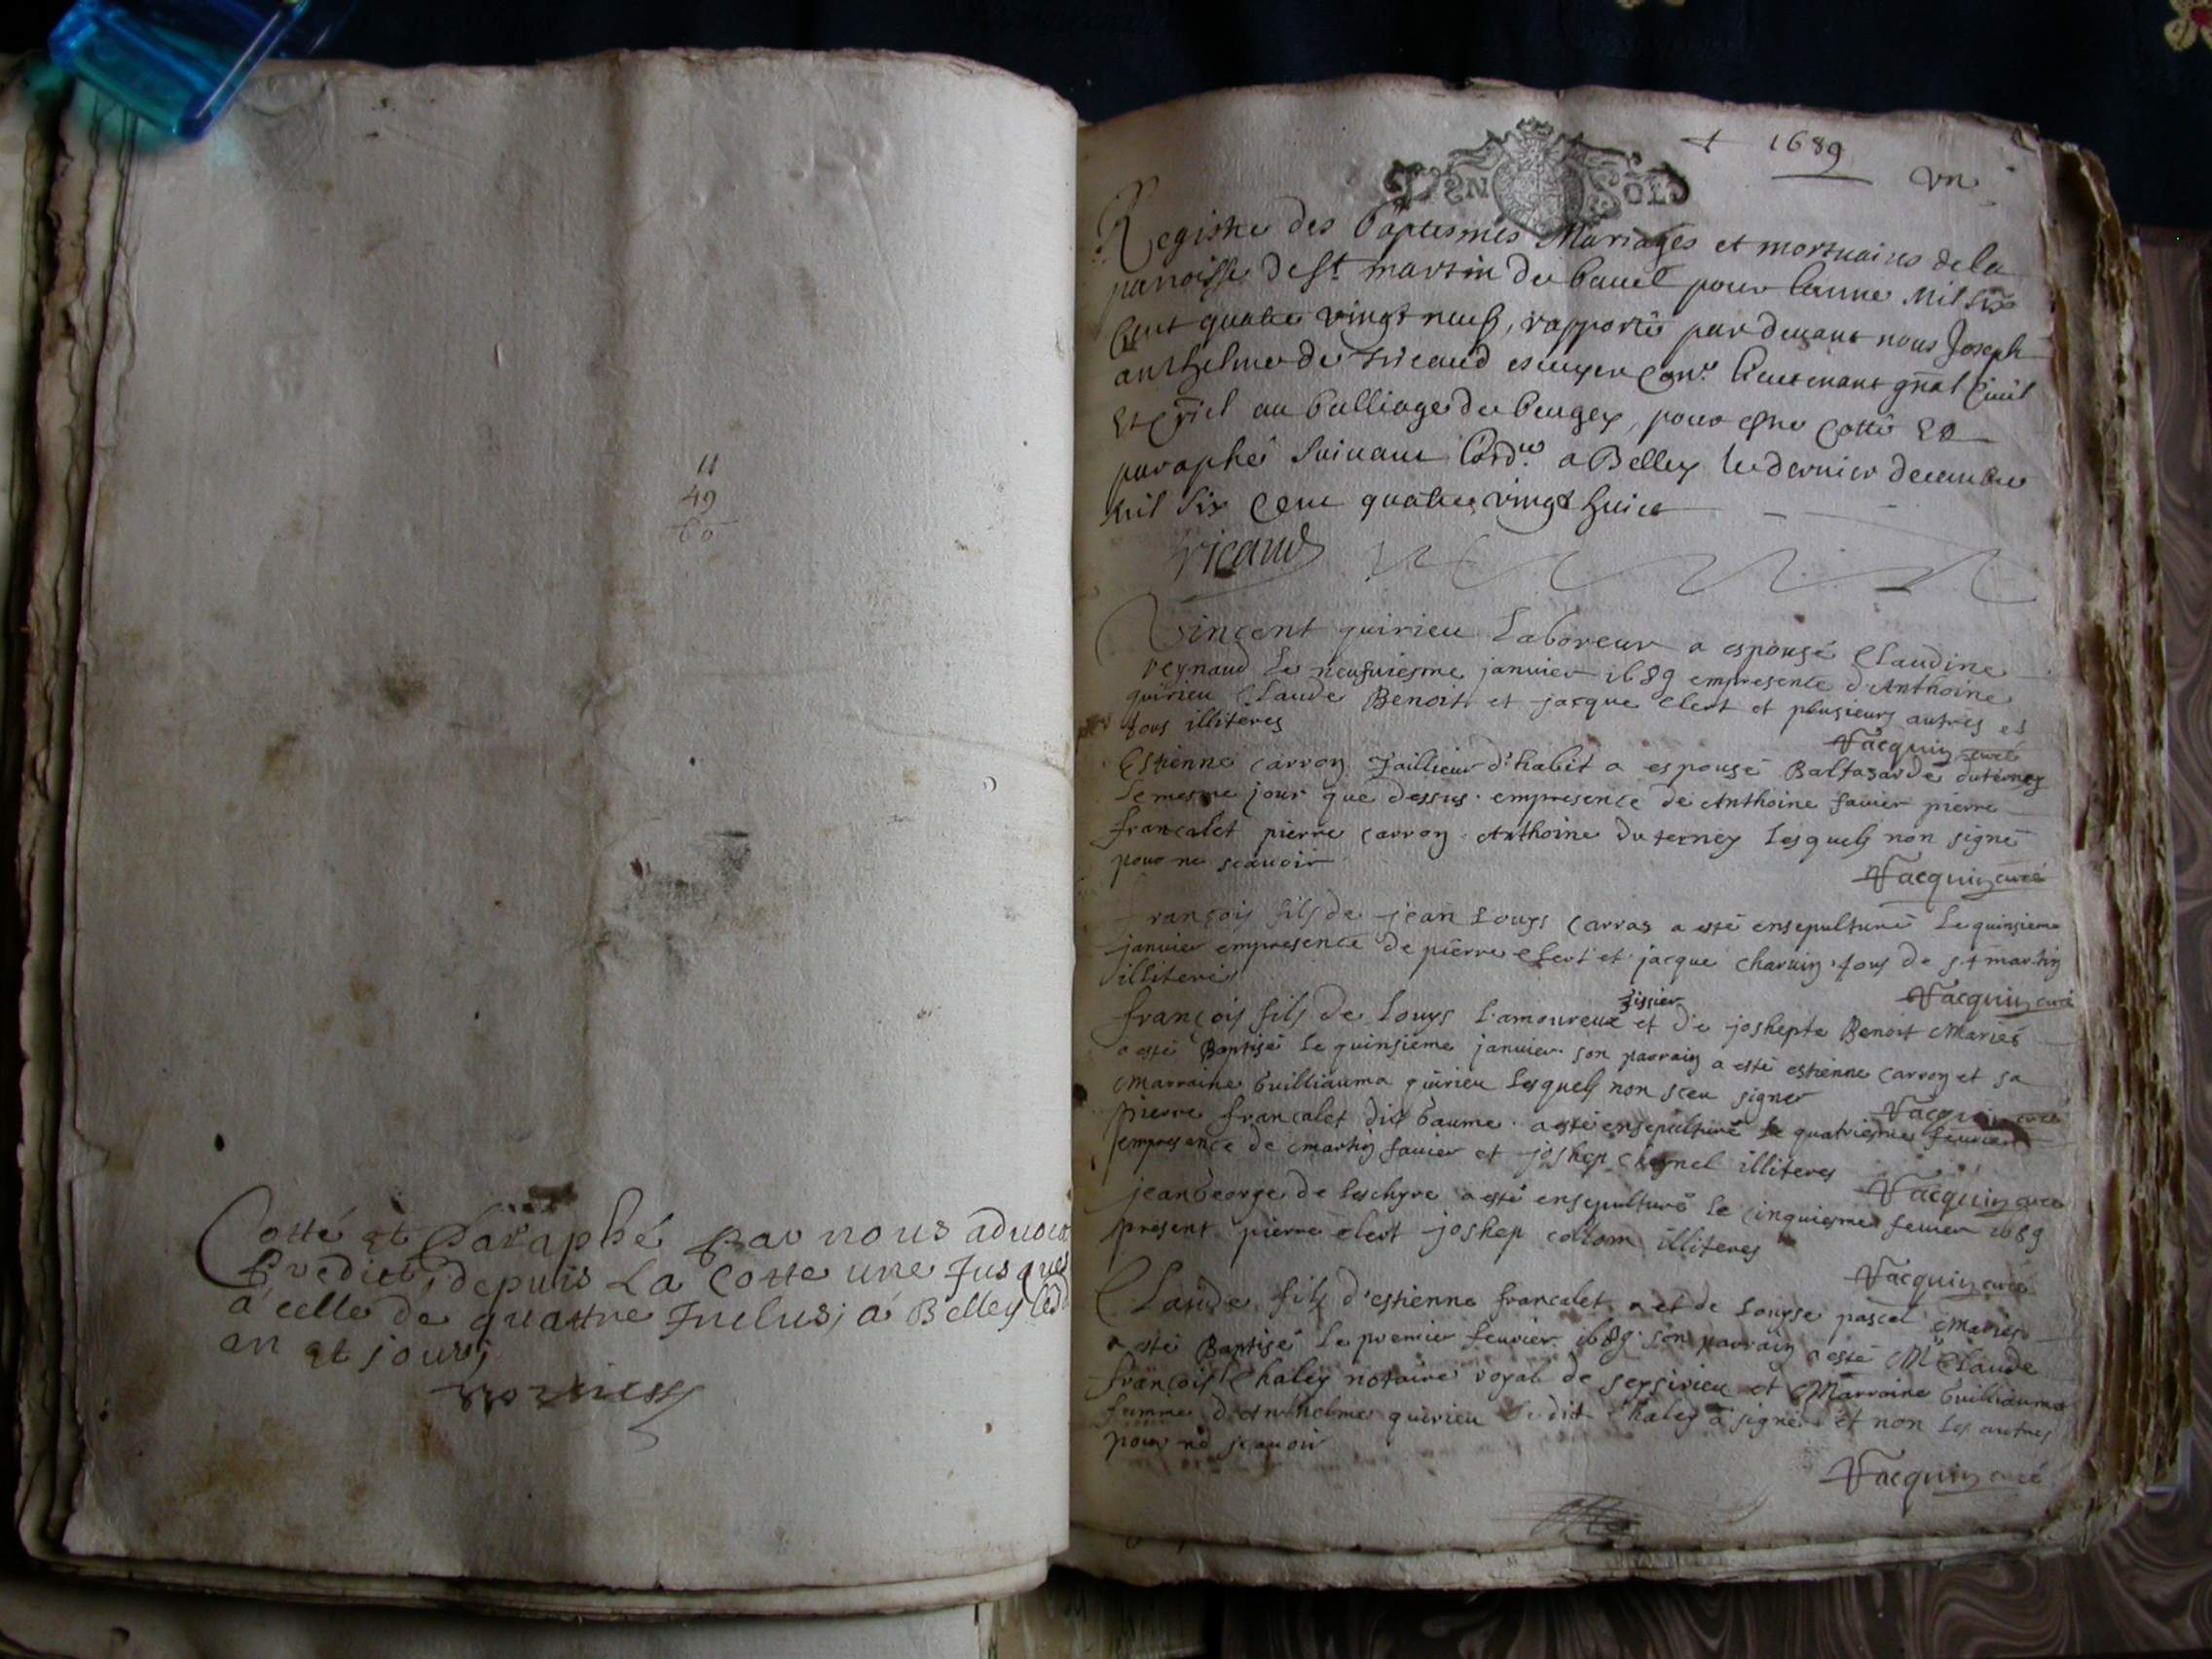 11
49
60
Cotté et Paraphé par nous advocat
Predict, depuis La Cotte une Jusques
a celle de quattre Inclus; a Belley led
an et jour;
+ 1689
vn
VN SOLS
Registre des baptesmes Mariages et mortuaires de la
parroisse de st martin du bauel pour lanne mil six
Cent quatre vingt neuf, rapporté par deuant nous Joseph
anthelme de tricaud escuyer Conr. lieutenant gnal Ciuil
Et Criel au balliage du beugey, pour estre Cotté Et
paraphé suiuant Lordce a Belley le dernier decembre
mil six Cent quatre vingt huict
Tricaud
Vincent quirieu Laboreur a espousé Claudine
Reynaud le neufuiesme janvier 1689 empresence d'Anthoine
quirieu Claude Benoit et jacque clert et plusieurs autres et
tous illiteres
Jacquin curé
Estienne carron Tailleur d'habit a espousé Baltasarde duterney
le mesme jour que dessus empresence de Anthoine fauier pierre
francalet pierre carron Anthoine du terney lesquels non signé
pour ne scauoir
Jacquin curé
François fils de jean Louys carras a esté ensepulturé le quinsieme
janvier empresence de pierre clert et jacque charuin tous de st martin
illiteres
Jacquin curé
tissier
françois fils de Louys l'amoureux et de joshepte Benoit Mariés
a esté Baptisé le quinsieme janvier son parrain a esté estienne carron et sa
Marraine Guilliauma quirieu lesquels non sceu signer
Jacquin curé
pierre francalet dit Gaume a esté ensepulturé le quatrieme feurier
empresence de martin fauier et joshep chesnel illiteres
Jacquin curé
jean George de leschyre a esté ensepulturé le cinquiesme feurier 1689
present pierre clert joshep collom illiteres
Jacquin curé
Claude fils d'estienne francalet et de Louyse pascal Mariés
a esté Baptisé le premier feurier 1689 son parrain a esté Mr Claude
françois Chaley notaire royal de seyssirieu et Marraine Guilliauma
femme d'Anthelme quirieu le dit Chaley a signé et non les autres
pour ne scauoir
Jacquin curé